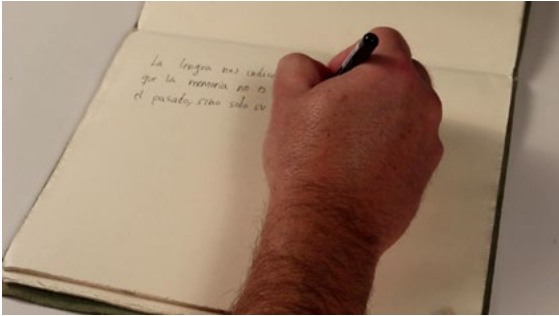 La lengua nos indica
que la memoria no
el pasado, sino solo su